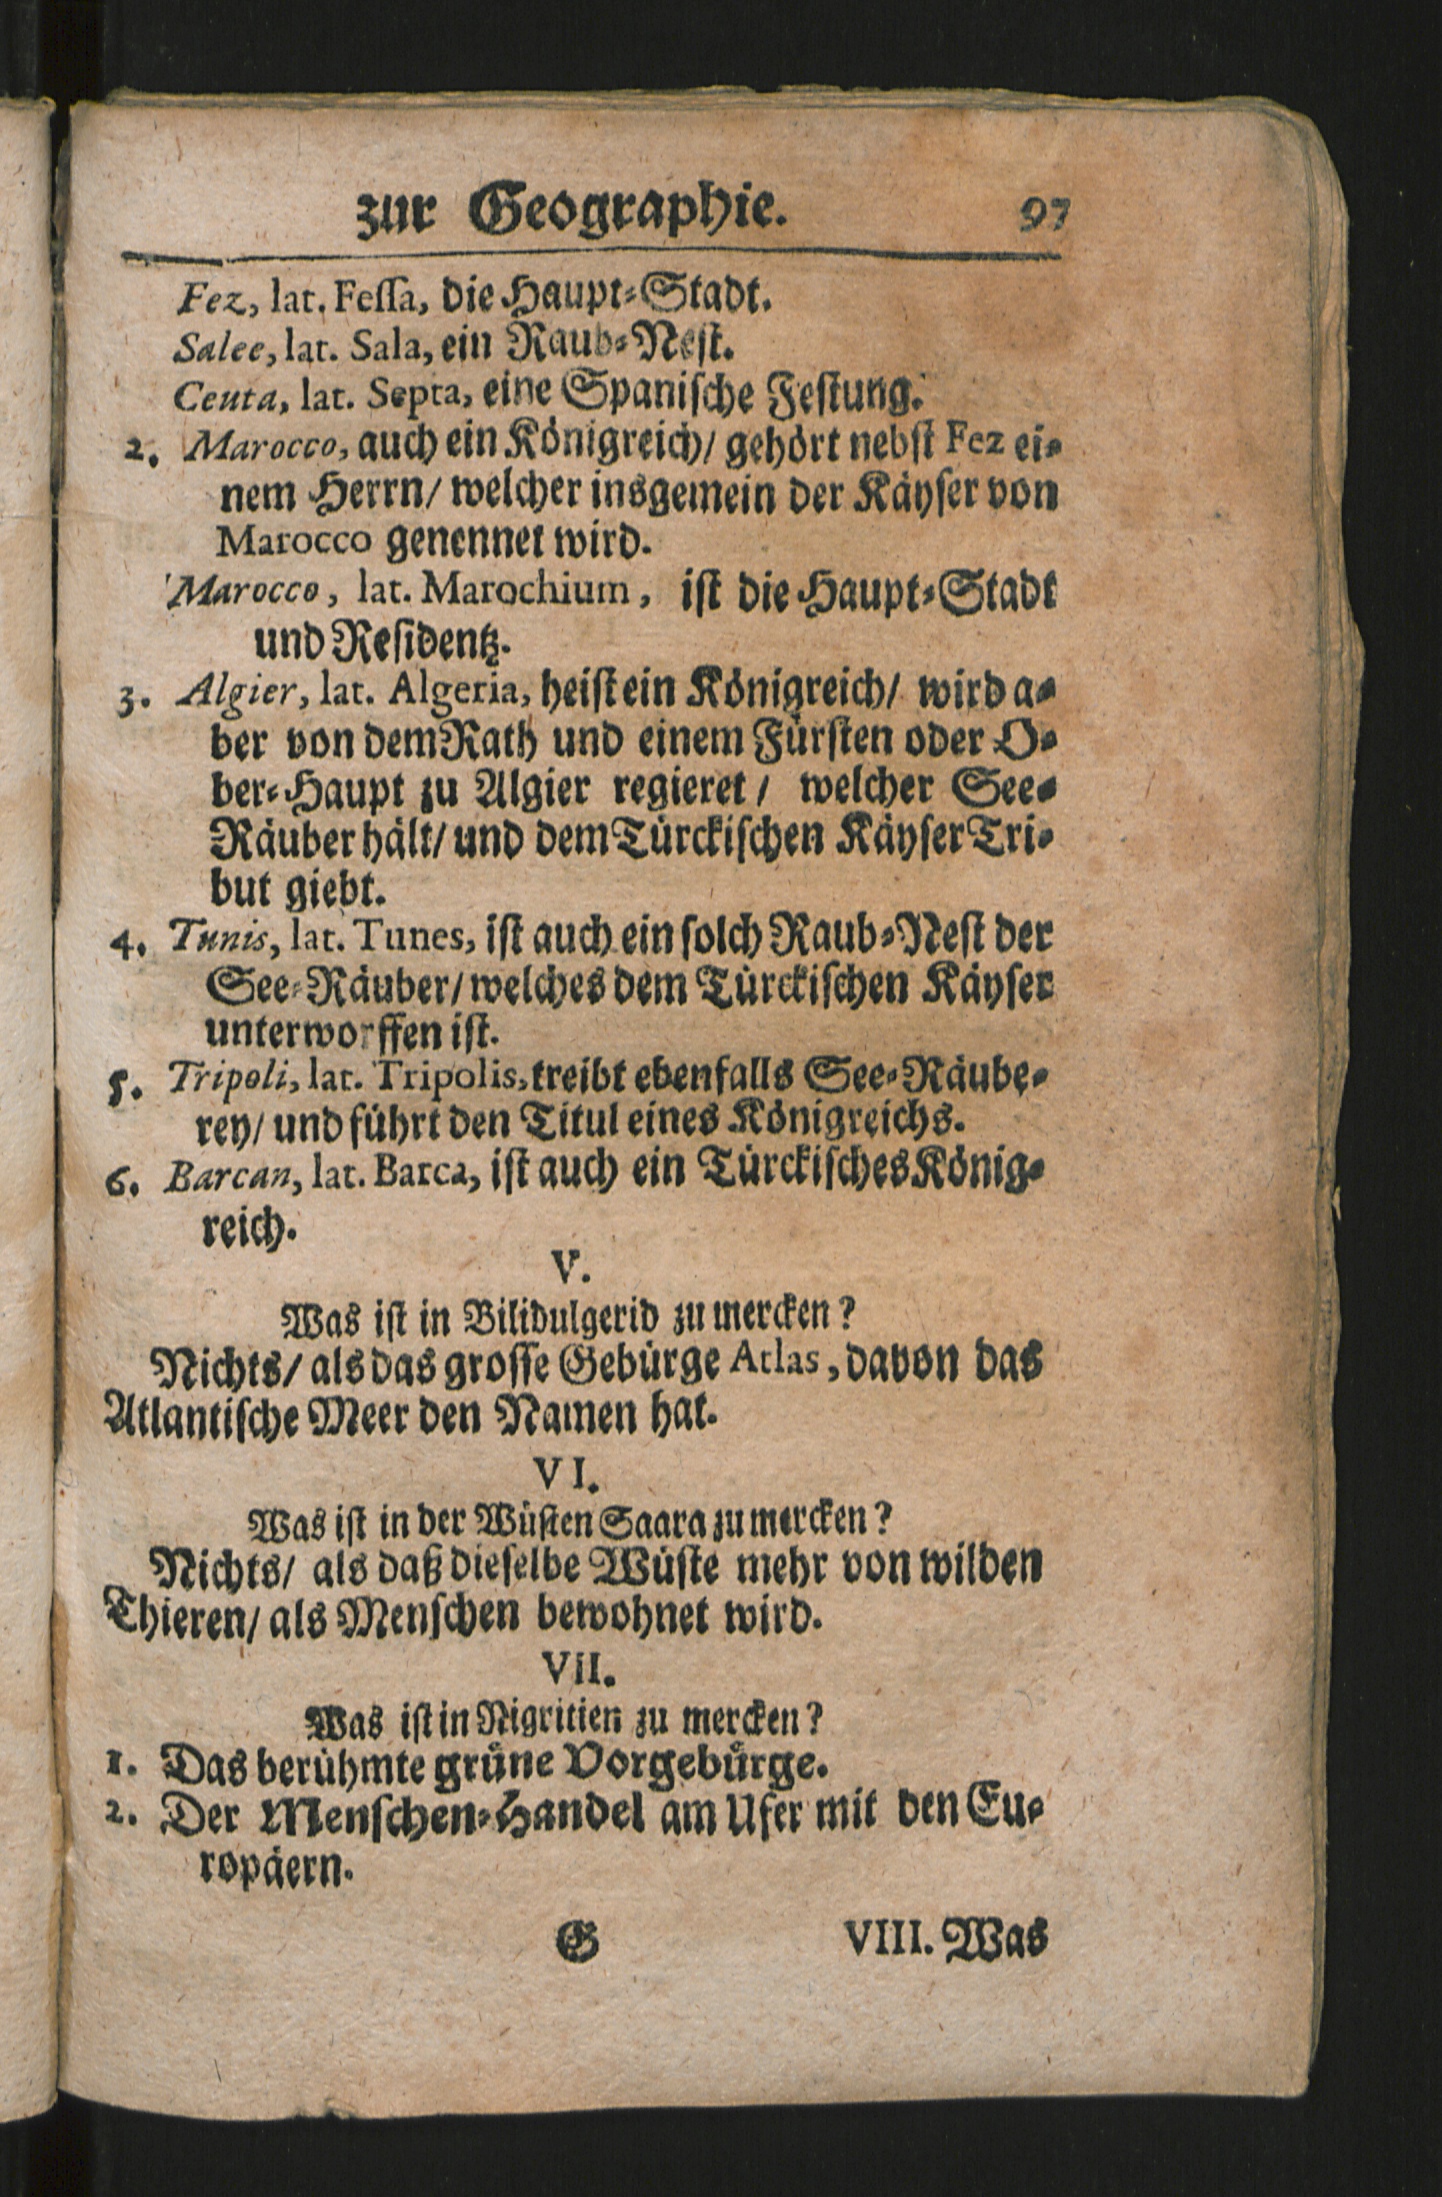 zur Geographie. 97
Fez, lat. Feſſa, die Haupt⸗Stadt.
Salee, lat. Sala, ein Raub⸗Neſt.
Ceuta, lat. Septa, eine Spaniſche Feſtung.
2. Marocco, auch ein Königreich/ gehört nebſt Fez ei⸗
nem Herrn/ welcher insgemein der Käyſer von
Marocco genennet wird.
Marocco, lat. Marochium, iſt die Haupt⸗Stadt
und Reſidentz.
3. Algier, lat. Algeria, heiſt ein Königreich/ wird a⸗
ber von dem Rath und einem Fürſten oder O⸗
ber⸗Haupt zu Algier regieret/ welcher See⸗
Räuber hält/ und dem Türckiſchen Käyſer Tri⸗
but giebt.
4. Tunis, lat. Tunes, iſt auch ein ſolch Raub⸗Neſt der
See⸗Räuber/ welches dem Türckiſchen Käyſer
unterworffen iſt.
5. Tripoli, lat. Tripolis, treibt ebenfalls See⸗Räube⸗
rey/ und führt den Titul eines Königreichs.
6. Barcan, lat. Barca, iſt auch ein Türckiſches König⸗
reich.
V.
Was iſt in Bilidulgerid zu mercken?
Nichts/ als das groſſe Gebürge Atlas, davon das
Atlantiſche Meer den Namen hat.
VI.
Was iſt in der Wüſten Saara zu mercken?
Nichts/ als daß dieſelbe Wüſte mehr von wilden
Thieren/ als Menſchen bewohnet wird.
VII.
Was iſt in Nigritien zu mercken?
1. Das berühmte grüne Vorgebürge.
2. Der Menſchen⸗Handel am Ufer mit den Eu⸗
ropäern.
G VIII. Was